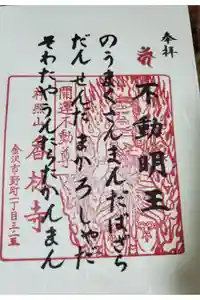 奉拝
不動明王
のうまくさんまんだばざら
だんせんだまかろしゃだ
そわたやうんたらたかんまん
開運不動尊
祥照山
倉林寺
金沢市野町一丁目三ー五